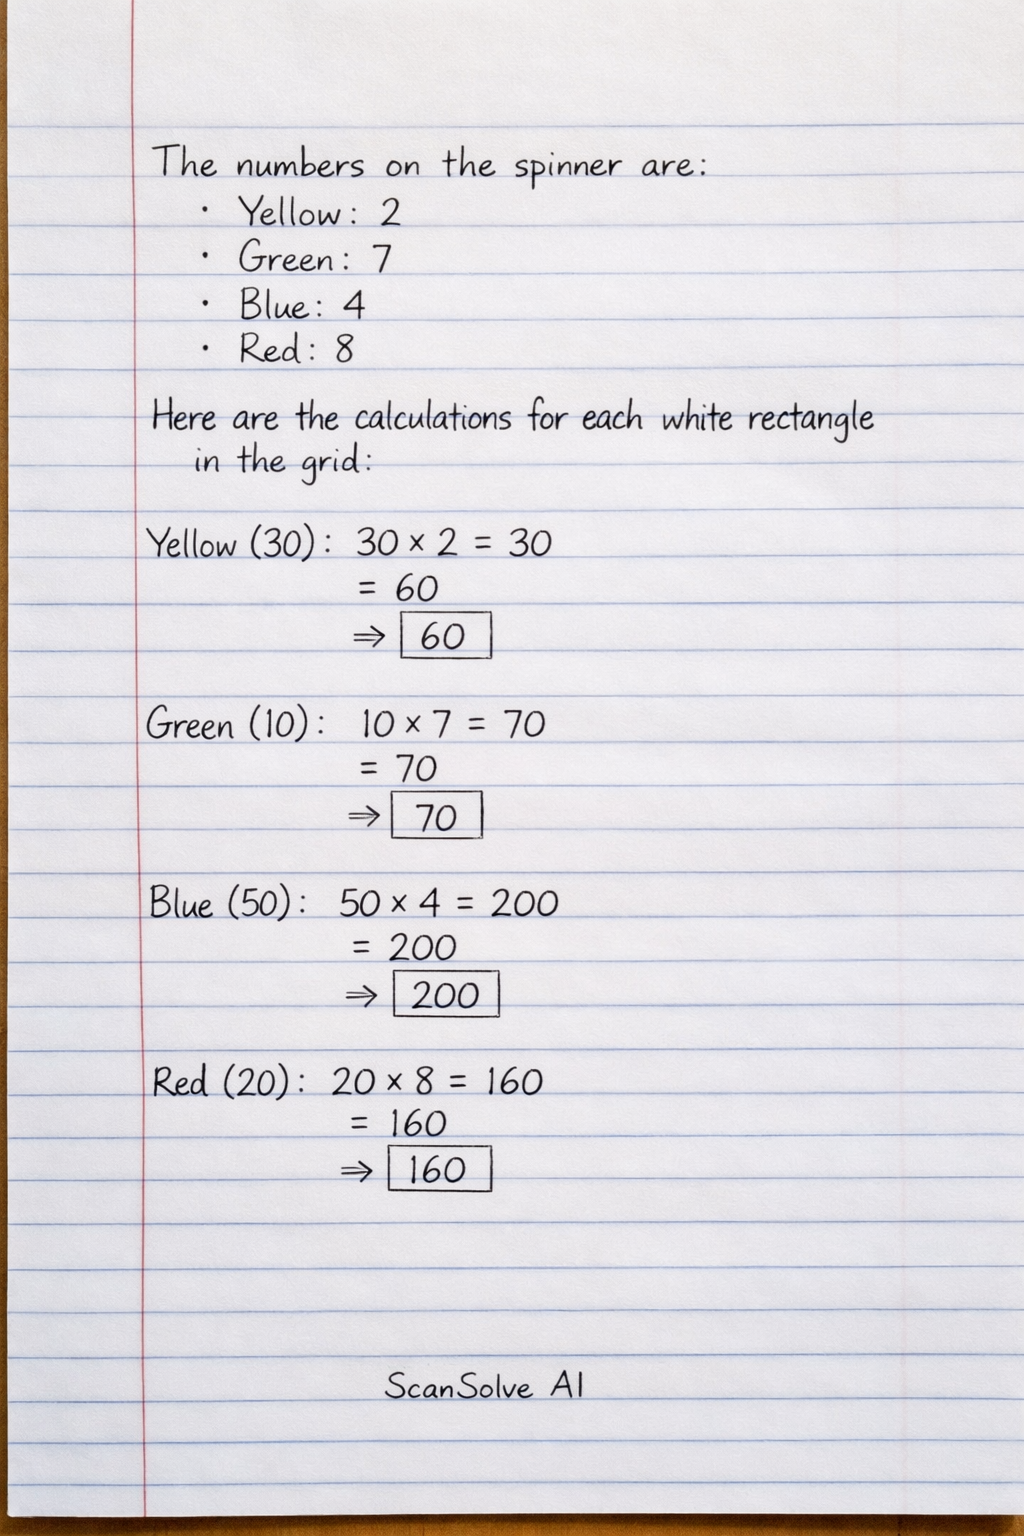 The numbers on the spinner are:
· Yellow: 2
· Green: 7
· Blue: 4
· Red: 8
Here are the calculations for each white rectangle
in the grid:
Yellow (30): 30 × 2 = 30
= 60
⇒ 60
Green (10): 10 × 7 = 70
= 70
⇒ 70
Blue (50): 50 × 4 = 200
= 200
⇒ 200
Red (20): 20 × 8 = 160
= 160
⇒ 160
ScanSolve AI